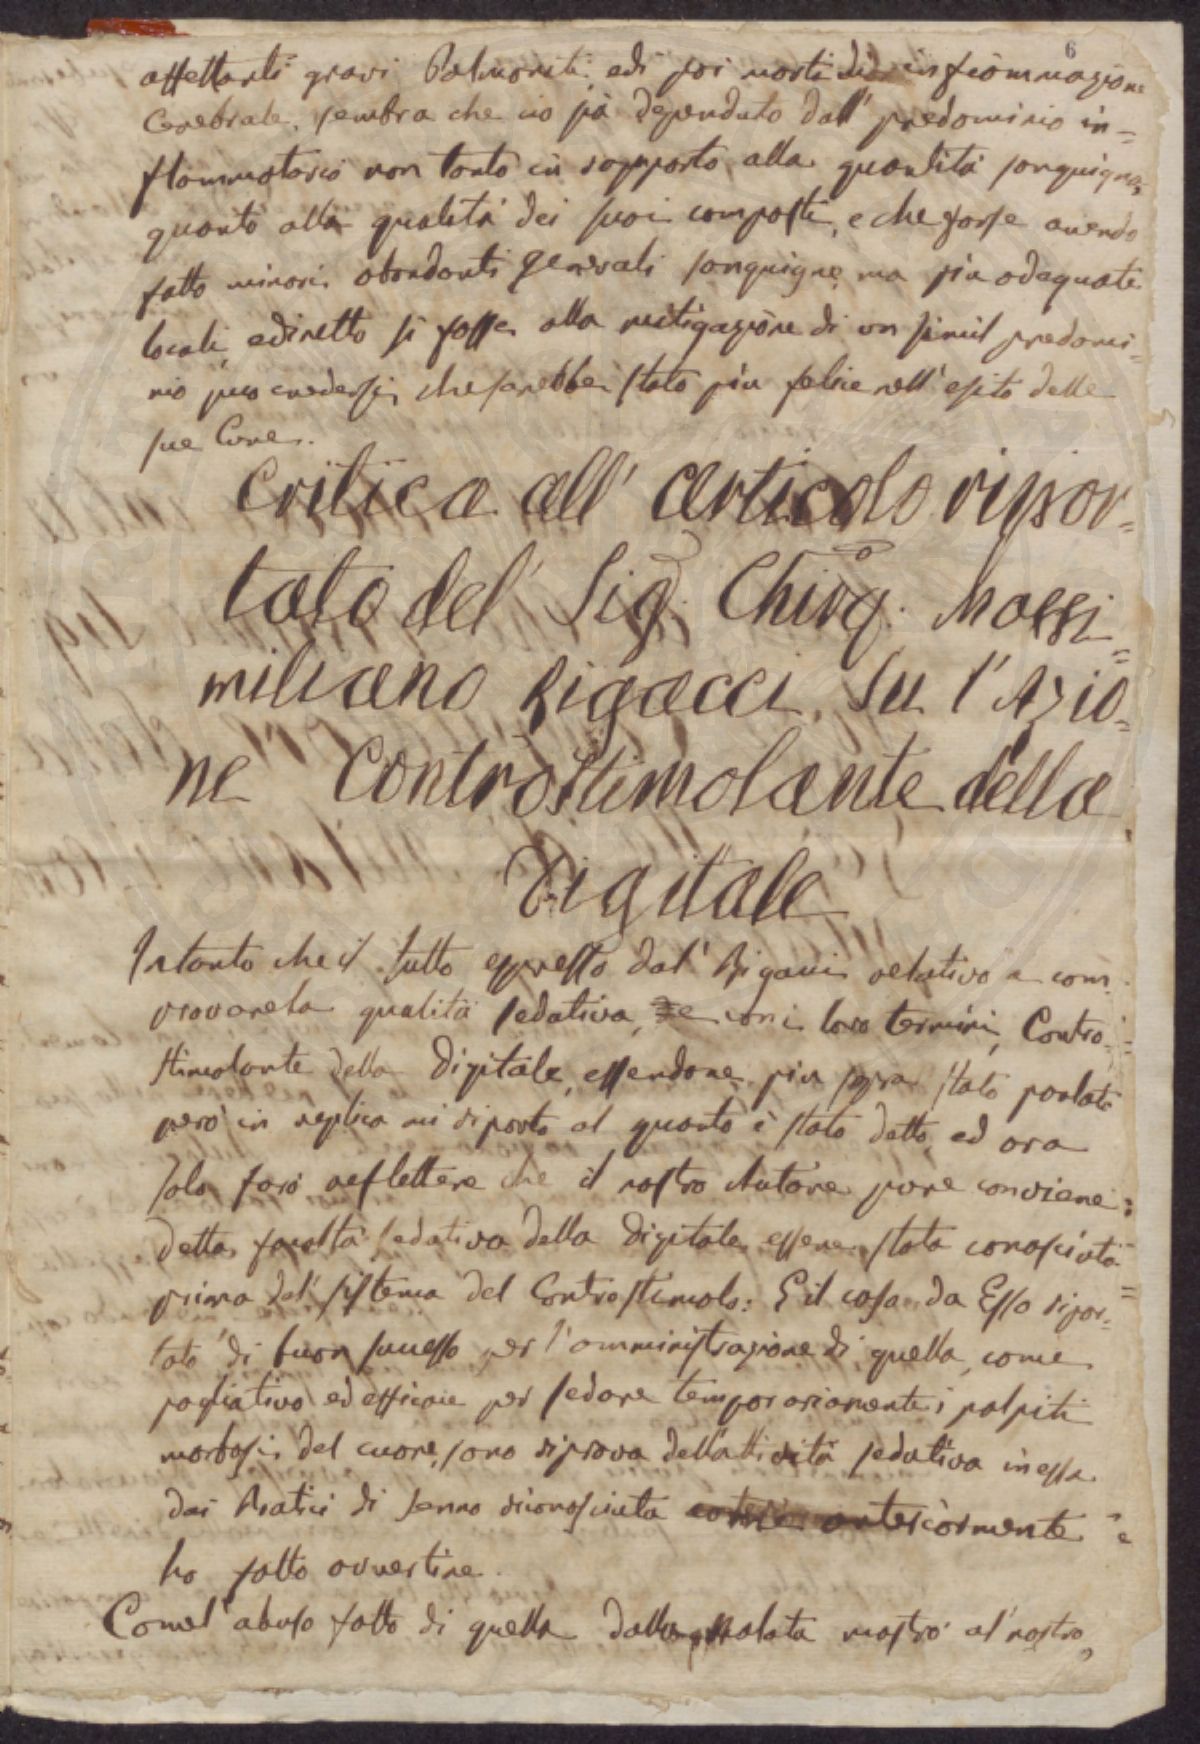 6
affettanti gravi Polmoniti, ed poi morti di infiammazione
Cerebrale, sembra che ciò sia dependuto dall' predominio in=
flammatorio non tanto in rapporto alla quantità sanguigna,
quanto alla qualità dei suoi composti, e che forse avendo
fatto minori abondanti generali sanguigne, ma più adequate
locali, e diretto si fosse alla mitigazione di un simil predomi=
nio, puo credersi, che sarebbe stato più felice nell' esito delle
sue Cure.
Critica all' Articolo ripor=
tato del' Sig.r Chirg.o Massi=
miliano Rigacci, Su l' Azio=
ne Controstimolante della
Digitale
Intanto che il tutto espresso dal' Rigacci relativo a com
provare la qualità sedativa, e con i loro termini, Contro=
stimolante della Digitale, essendone più sopra stato parlato
però in replica mi riporto al quanto è stato detto, ed ora
solo farò reflettere che il nostro Autore pure conviene:
detta facoltà sedativa della Digitale essere stata conosciuta
prima del' sistema del Controstimolo: E il caso da Esso ripor=
tato di buon successo per l' amministrazione di quella, come
pagliativo ed efficace per sedare temporariamente i palpiti
morbosi del cuore, sono riprova dell'attività sedativa in essa
dai Pratici di senno riconosciuta anteriormente e
ho fatto avvertire.
Come l' abuso fatto di quella dalla malata mostrò al' nostro,